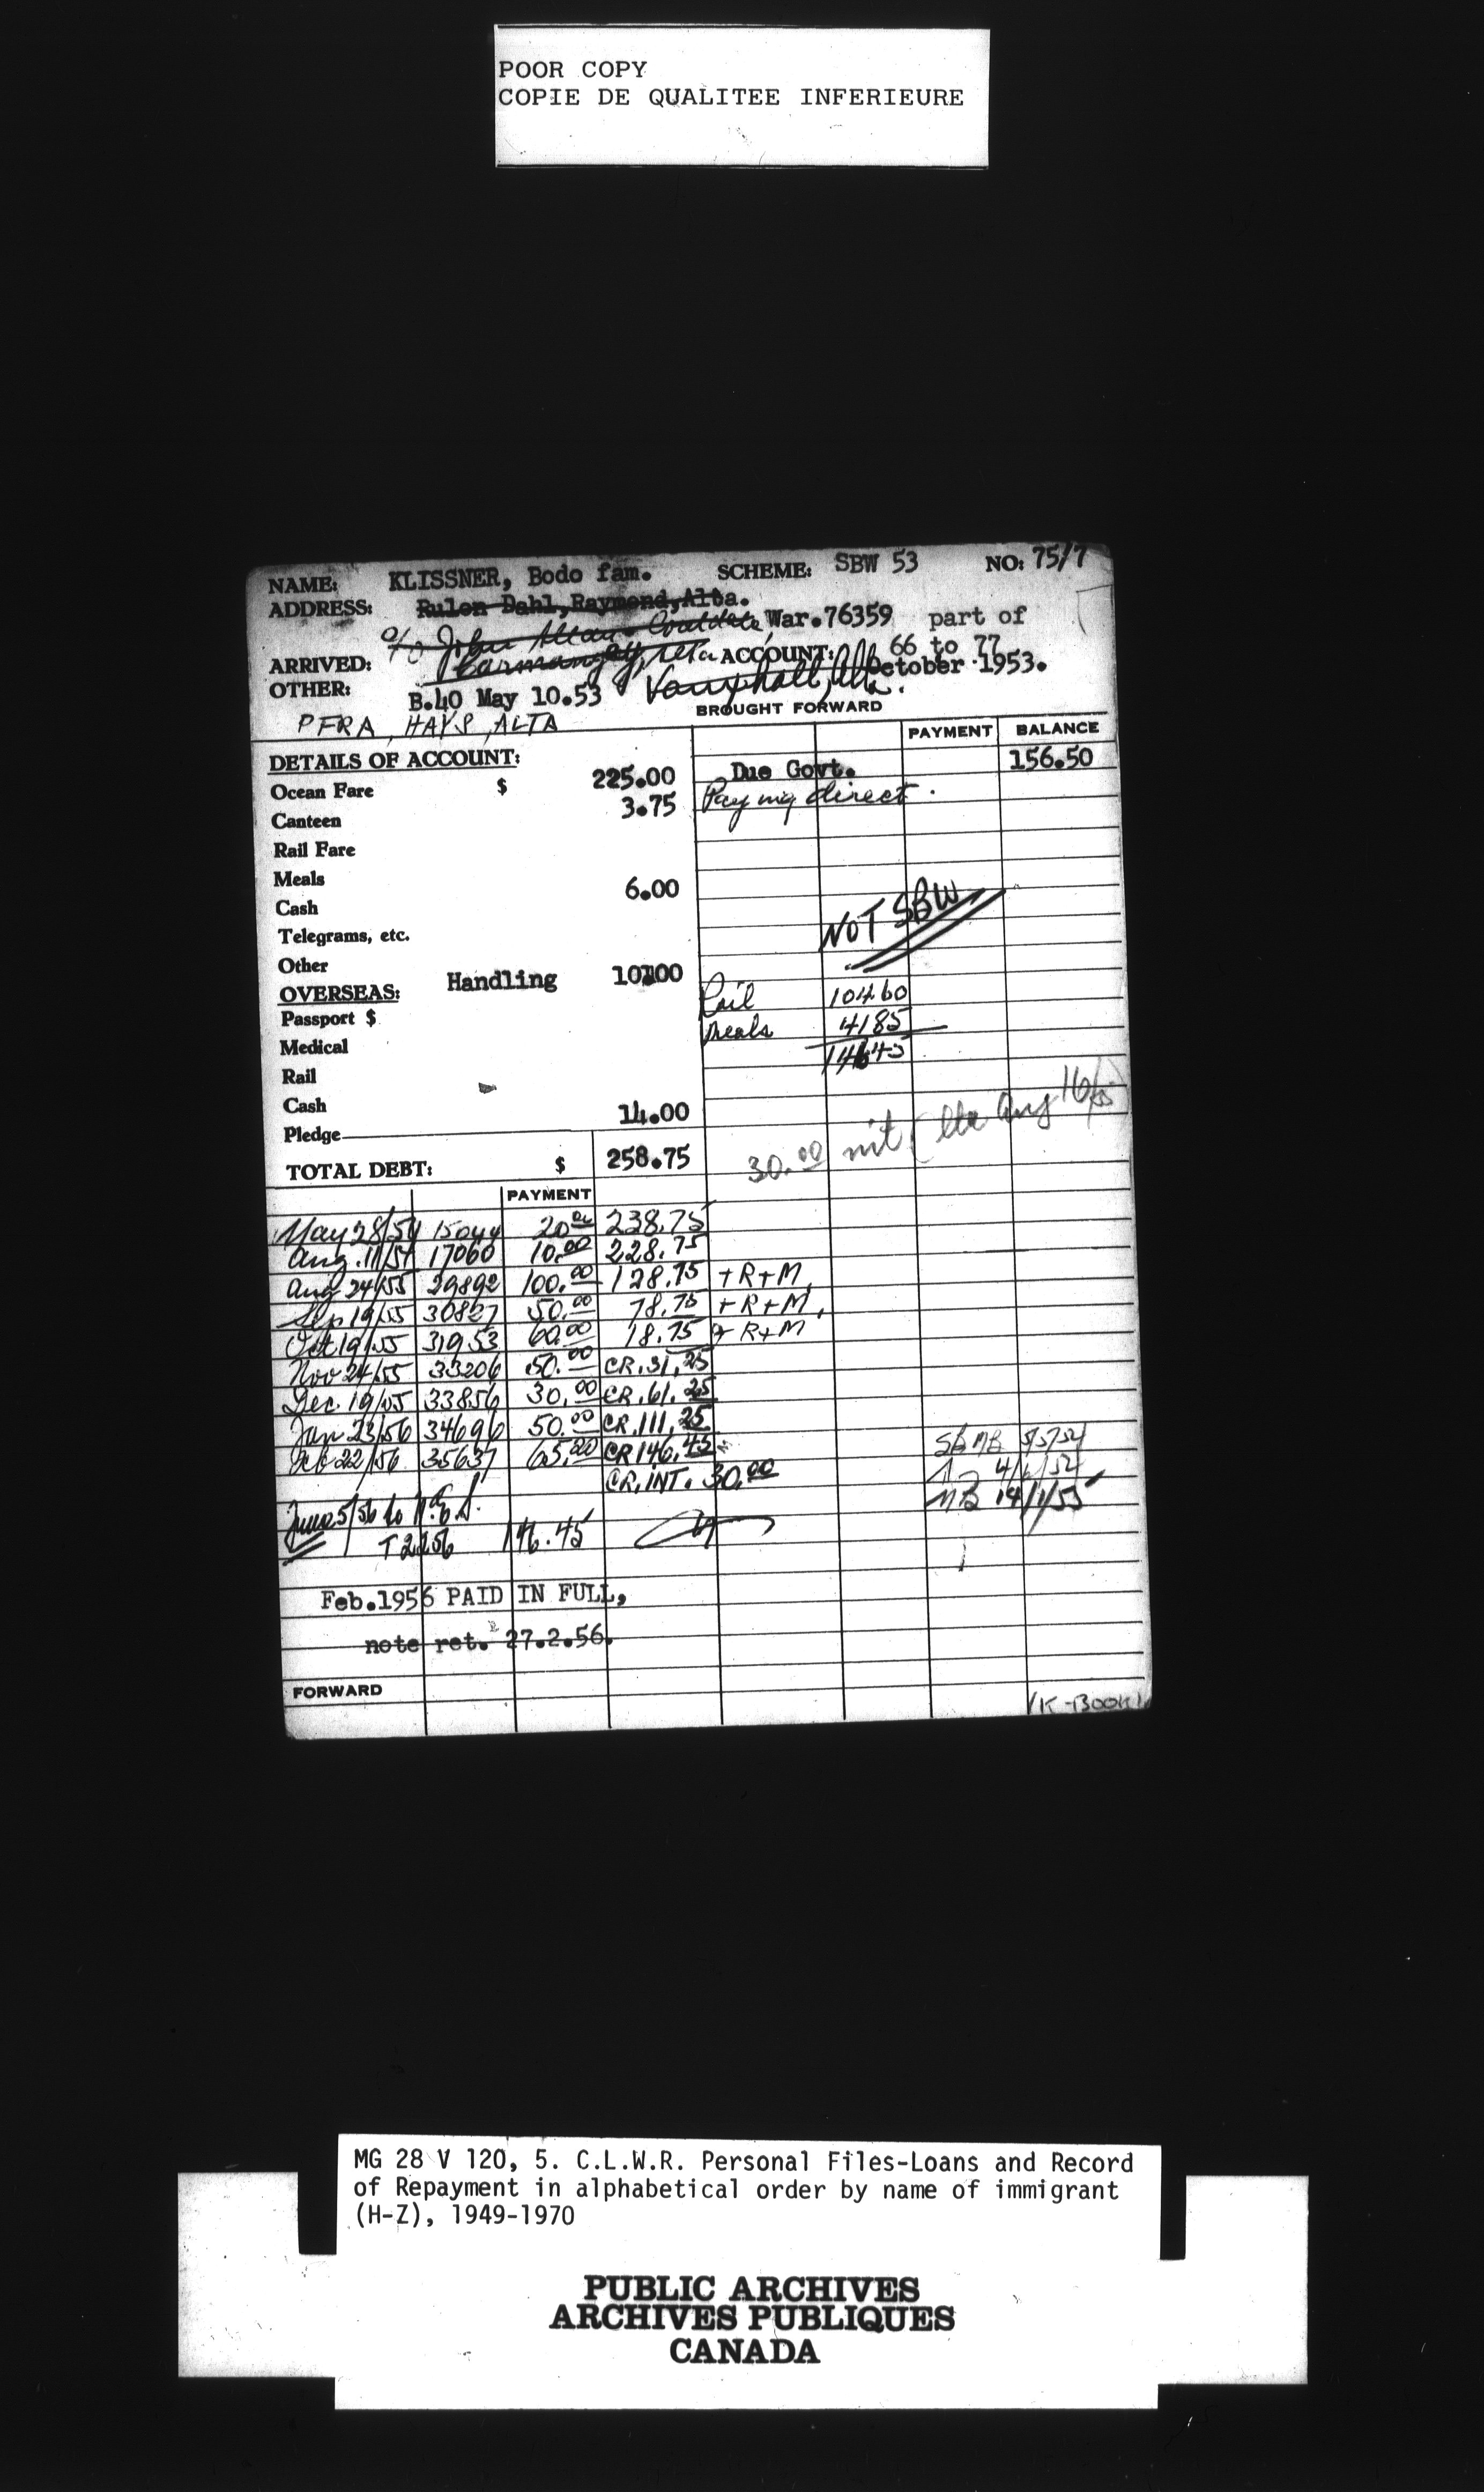 POOR COPY
COPIE DE QUALITEE INFERIEURE
NAME: KLISSNER, Bodo fam. SCHEME: SBW 53 NO: 75/7
ADDRESS: Rulon Dahl, Raymond, Alta.
c/o John Coaldale War.76359 part of
ARRIVED: Carmangay, Alta ACCOUNT: 66 to 77
October 1953.
OTHER: B.40 May 10.53 Vauxhall, Alta.
BROUGHT FORWARD
PFRA, HAYS, ALTA
PAYMENT BALANCE
DETAILS OF ACCOUNT: Due Govt. 156.50
Ocean Fare $ 225.00 Paying direct.
Canteen 3.75
Rail Fare
Meals 6.00
Cash
NOT SBW
Telegrams, etc.
Other Handling 10.00
OVERSEAS: Rail 104 60
Passport $ Meals 41 85
Medical 146 45
Rail
Cash 14.00
Pledge
30.00 int (ltr Aug 16/55)
TOTAL DEBT: $ 258.75
PAYMENT
May 28/54 15044 20.00 238.75
Aug. 11/54 17060 10.00 228.75
Aug 24/55 29892 100.00 128.75 + R+M
Sep 19/55 30827 50.00 78.75 + R+M
Oct 19/55 31953 60.00 18.75 + R+M
Nov 24/55 33206 50.00 CR. 31.25
Dec 19/55 33856 30.00 CR. 61.25
Jan 23/56 34696 50.00 CR. 111.25
Feb 22/56 35637 65.20 CR 146.45
CR. INT. 30.00
June 5/56 to
T2256 146.45
Feb.1956 PAID IN FULL,
note ret. 27.2.56.
FORWARD
K-BOOK
MG 28 V 120, 5. C.L.W.R. Personal Files-Loans and Record
of Repayment in alphabetical order by name of immigrant
(H-Z), 1949-1970
PUBLIC ARCHIVES
ARCHIVES PUBLIQUES
CANADA